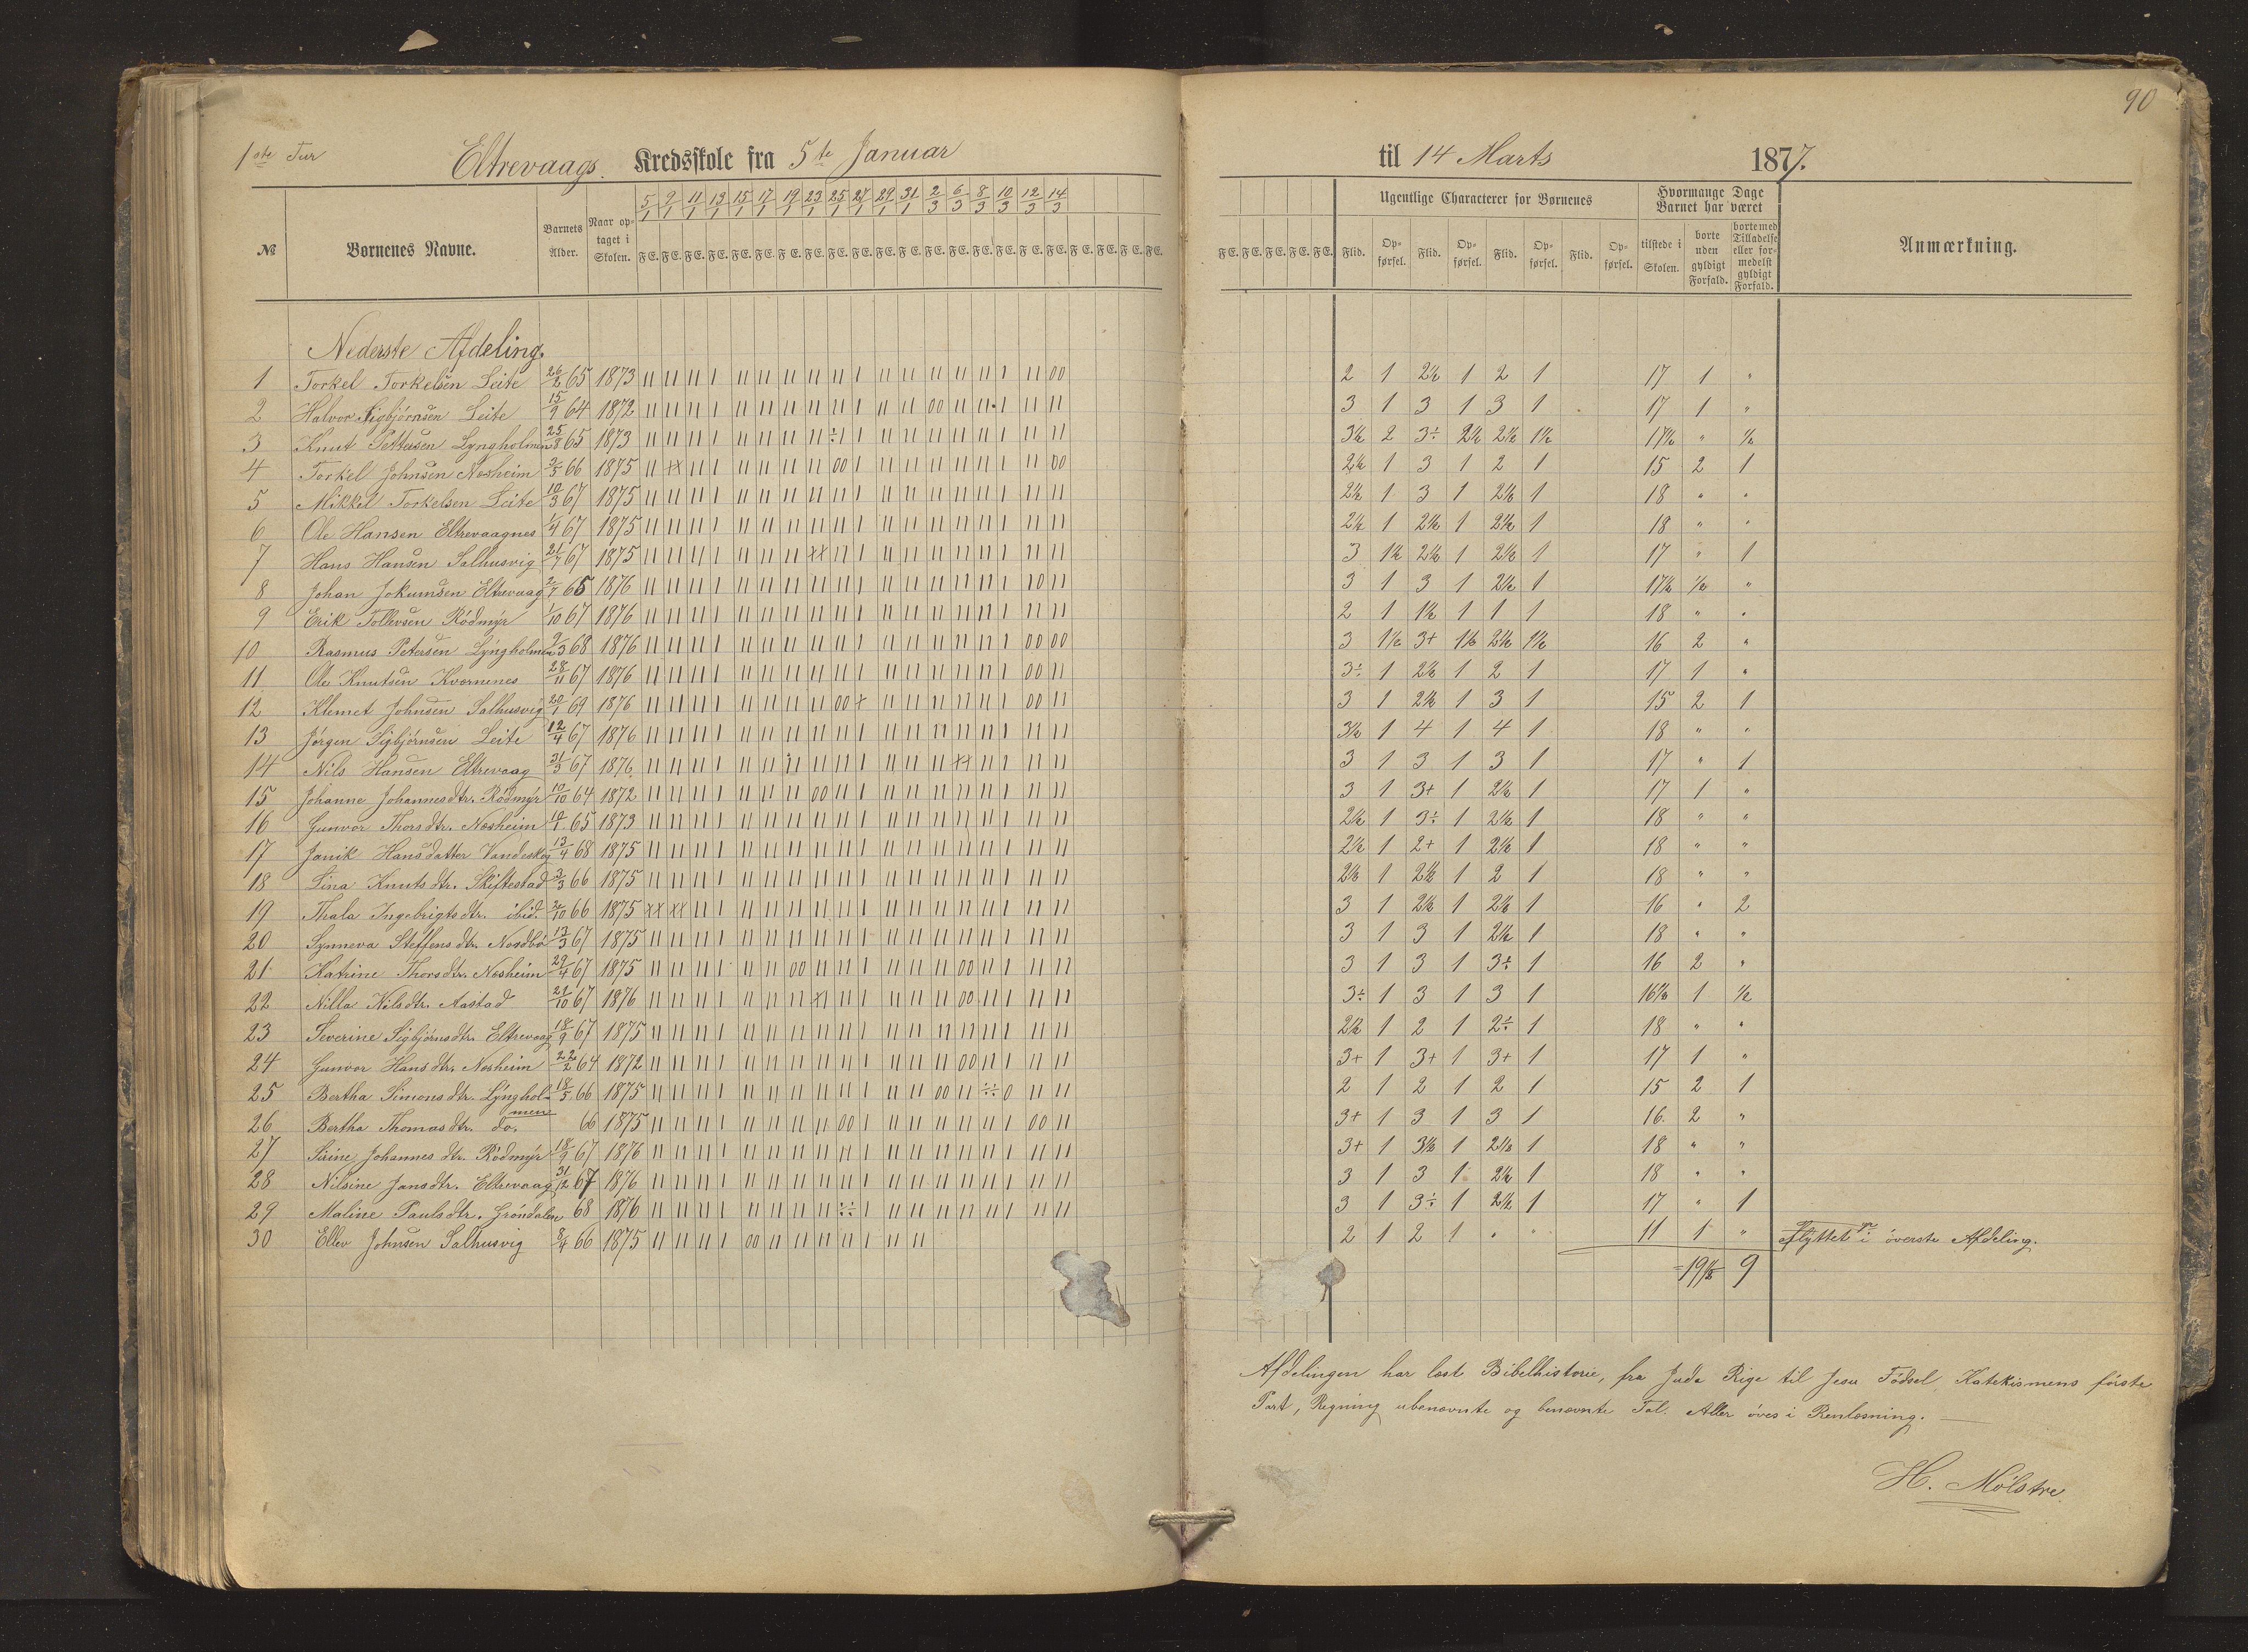 90
1ste Tur Eltrevaags. Kredsskole fra 5te Januar til 14 Marts 1877.
№ Børnenes Navne. Barnets Alder. Naar optaget i Skolen. 5/1 9/1 11/1 13/1 15/1 17/1 19/1 23/1 25/1 27/1 29/1 31/1 2/3 6/3 8/3 10/3 12/3 14/3
F E. F E. F E. F E. F E. F E. F E. F E. F E. F E. F E. F E. F E. F E. F E. F E. F E. F E. F E. F E. F E. F E.
F E. F E. F E. F E. F E. Ugentlige Characterer for Børnenes Flid. Opførsel. Flid. Opførsel. Flid. Opførsel. Flid. Opførsel. Hvormange Dage Barnet har været tilstede i Skolen. borte uden gyldigt Forfald. borte med Tilladelse eller formedelst gyldigt Forfald. Anmærkning.
Nederste Afdeling.
1 Torkel Torkelsen Leite 26/2 65 1873 2 1 2½ 1 2 1 17 1 "
2 Halvor Sigbjørnsen Leite 15/9 64 1872 3 1 3 1 3 1 17 1 "
3 Knut Pettersen Lyngholmen 25/8 65 1873 3½ 2 3÷ 2½ 2½ 1½ 17½ " ½
4 Torkel Johnsen Nesheim 66 1875 2½ 1 3 1 2 1 15 2 1
5 Mikkel Torkelsen Leite 10/3 67 1875 2½ 1 3 1 2½ 1 18 " "
6 Ole Hansen Eltrevaagnes 1/4 67 1875 2½ 1 2½ 1 2½ 1 18 " "
7 Hans Hansen Salhusvig 21/7 67 1875 3 1½ 2½ 1 2½ 1 17 " 1
8 Johan Jokumsen Eltrevaag 2/7 65 1876 3 1 3 1 2½ 1 17½ ½ "
9 Erik Tollevsen Rødmyr 1/10 67 1876 2 1 1½ 1 1 1 18 " "
10 Rasmus Petersen Lyngholmen 68 1876 3 1½ 3+ 1½ 2½ 1½ 16 2 "
11 Ole Knutsen Kvernenes 28/11 67 1876 3÷ 1 2½ 1 2 1 17 1 "
12 Klemet Johnsen Salhusvig 20/1 69 1876 3 1 2½ 1 3 1 15 2 1
13 Jørgen Sigbjørnsen Leite 12/4 67 1876 3½ 1 4 1 4 1 18 " "
14 Nils Hansen Eltrevaag 31/3 67 1876 3 1 3 1 3 1 17 " 1
15 Johanne Johannesdtr. Rødmyr 10/10 64 1872 3 1 3+ 1 2½ 1 17 1 "
16 Gunvor Thorsdtr. Nesheim 65 1873 2½ 1 3÷ 1 2½ 1 18 " "
17 Janik Hansdatter Vandeskog 13/4 68 1875 2½ 1 2+ 1 2½ 1 18 " "
18 Sina Knutsdtr. Skiftestad 3/3 66 1875 2½ 1 2½ 1 2 1 18 " "
19 Thala Ingebrigtsdtr. ibid. 66 1875 3 1 2½ 1 2½ 1 16 " 2
20 Synneva Steffensdtr. Nordbø 13/3 67 1875 3 1 3 1 2½ 1 18 " "
21 Katrine Thorsdtr. Nesheim 29/4 67 1875 3 1 3 1 3÷ 1 16 2 "
22 Nilla Nilsdtr. Aastad 21/10 67 1876 3÷ 1 3 1 3 1 16½ 1 ½
23 Severine Sigbjørnsdtr. Eltrevaag 18/9 67 1875 2½ 1 2 1 2÷ 1 18 " "
24 Gunvor Hansdtr. Nesheim 22/2 64 1872 3+ 1 3+ 1 3+ 1 17 1 "
25 Bertha Simonsdtr. Lyngholmen 18/5 66 1875 2 1 2 1 2 1 15 2 1
26 Bertha Thomasdtr. do. 66 1875 3+ 1 3 1 3 1 16 2 "
27 Sirine Johannesdtr. Rødmyr 18/9 67 1876 3+ 1 3½ 1 2½ 1 18 " "
28 Nilsine Jansdtr. Eltrevaag 31/12 67 1876 3 1 3 1 2½ 1 18 " "
29 Maline Paulsdtr. Grøndalen 68 1876 3 1 3÷ 1 2½ 1 17 " 1
30 Ellev Johnsen Salhusvig 8/4 66 1875 2 1 2 1 " " 11 1 " Flyttet i øverste Afdeling.
=19½ 9
Afdelingen har læst Bibelhistorie, fra Juda Rige til Jesu Fødsel, Katekismens første
Part, Regning ubenævnte og benævnte Tal. Aller øves i Renlæsning. —
H. Mølstre